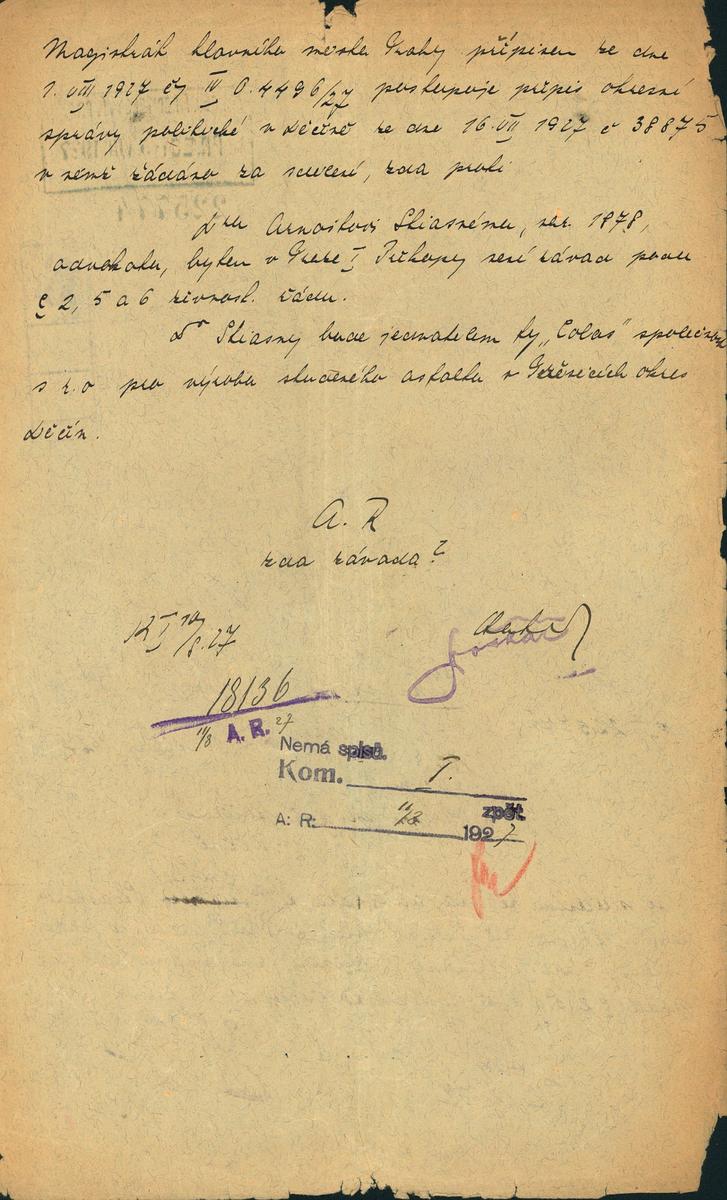 Magistrát hlavního města Prahy přípisem ze dne
1. VIII 1927 čj IV O. 4496/27 postupuje přípis okresní
správy politické v Děčíně ze dne 16. VII 1927 č 38875
v němž žádáno za sdělení, zda proti
Dru Arnoštovi Stiasnému, nar. 1878,
advokátu, bytem v Praze I Příkopy není závad podle
§ 2, 5 a 6 živnost. řádu.
Dr Stiasny bude jednatelem fy „Colas" společnost
s r. o pro výrobu studeného asfaltu v okres
Děčín.
A. R
zda závada?
K I 10/8. 27
18136
11/8 A. R. 27
Nemá spisů.
Kom. I.
zpět.
A: R: 11/8 1927